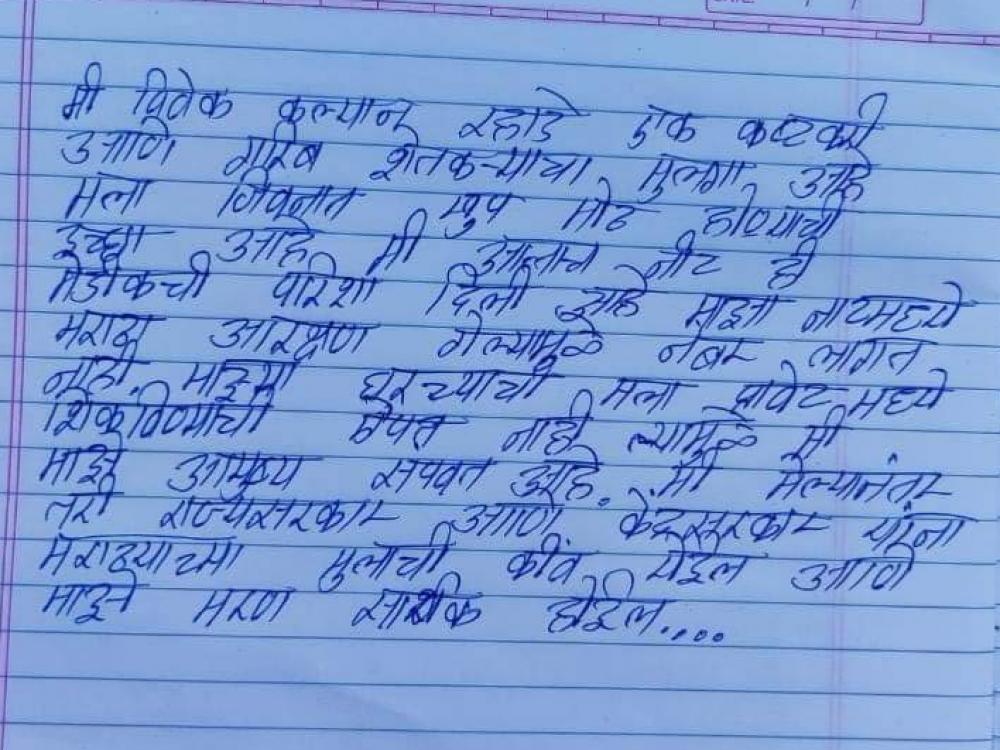 मी विवेक कल्यान रहाडे एक कष्टकरी
आणि गरिब शेतकऱ्याचा मुलगा आहे
मला जिवनात खुप मोठ होण्याची
इच्छा आहे मी आत्ताच नीट ही
मेडीकची परिक्षा दिली आहे माझा नीटमध्ये
मराठा आरक्षण गेल्यामुळे नंबर लागत
नाही. माझ्या घरच्याची मला प्रावेट मध्ये
शिकविण्याची ऐपत नाही त्यामुळे मी
माझे आयुष्य संपवत आहे. मी मेल्यानंतर
तरी राज्यसरकार आणि केंद्रसरकार यांना
मराठ्याच्या मुलाची कीव येईल आणि
माझे मरण सार्थक होईल....